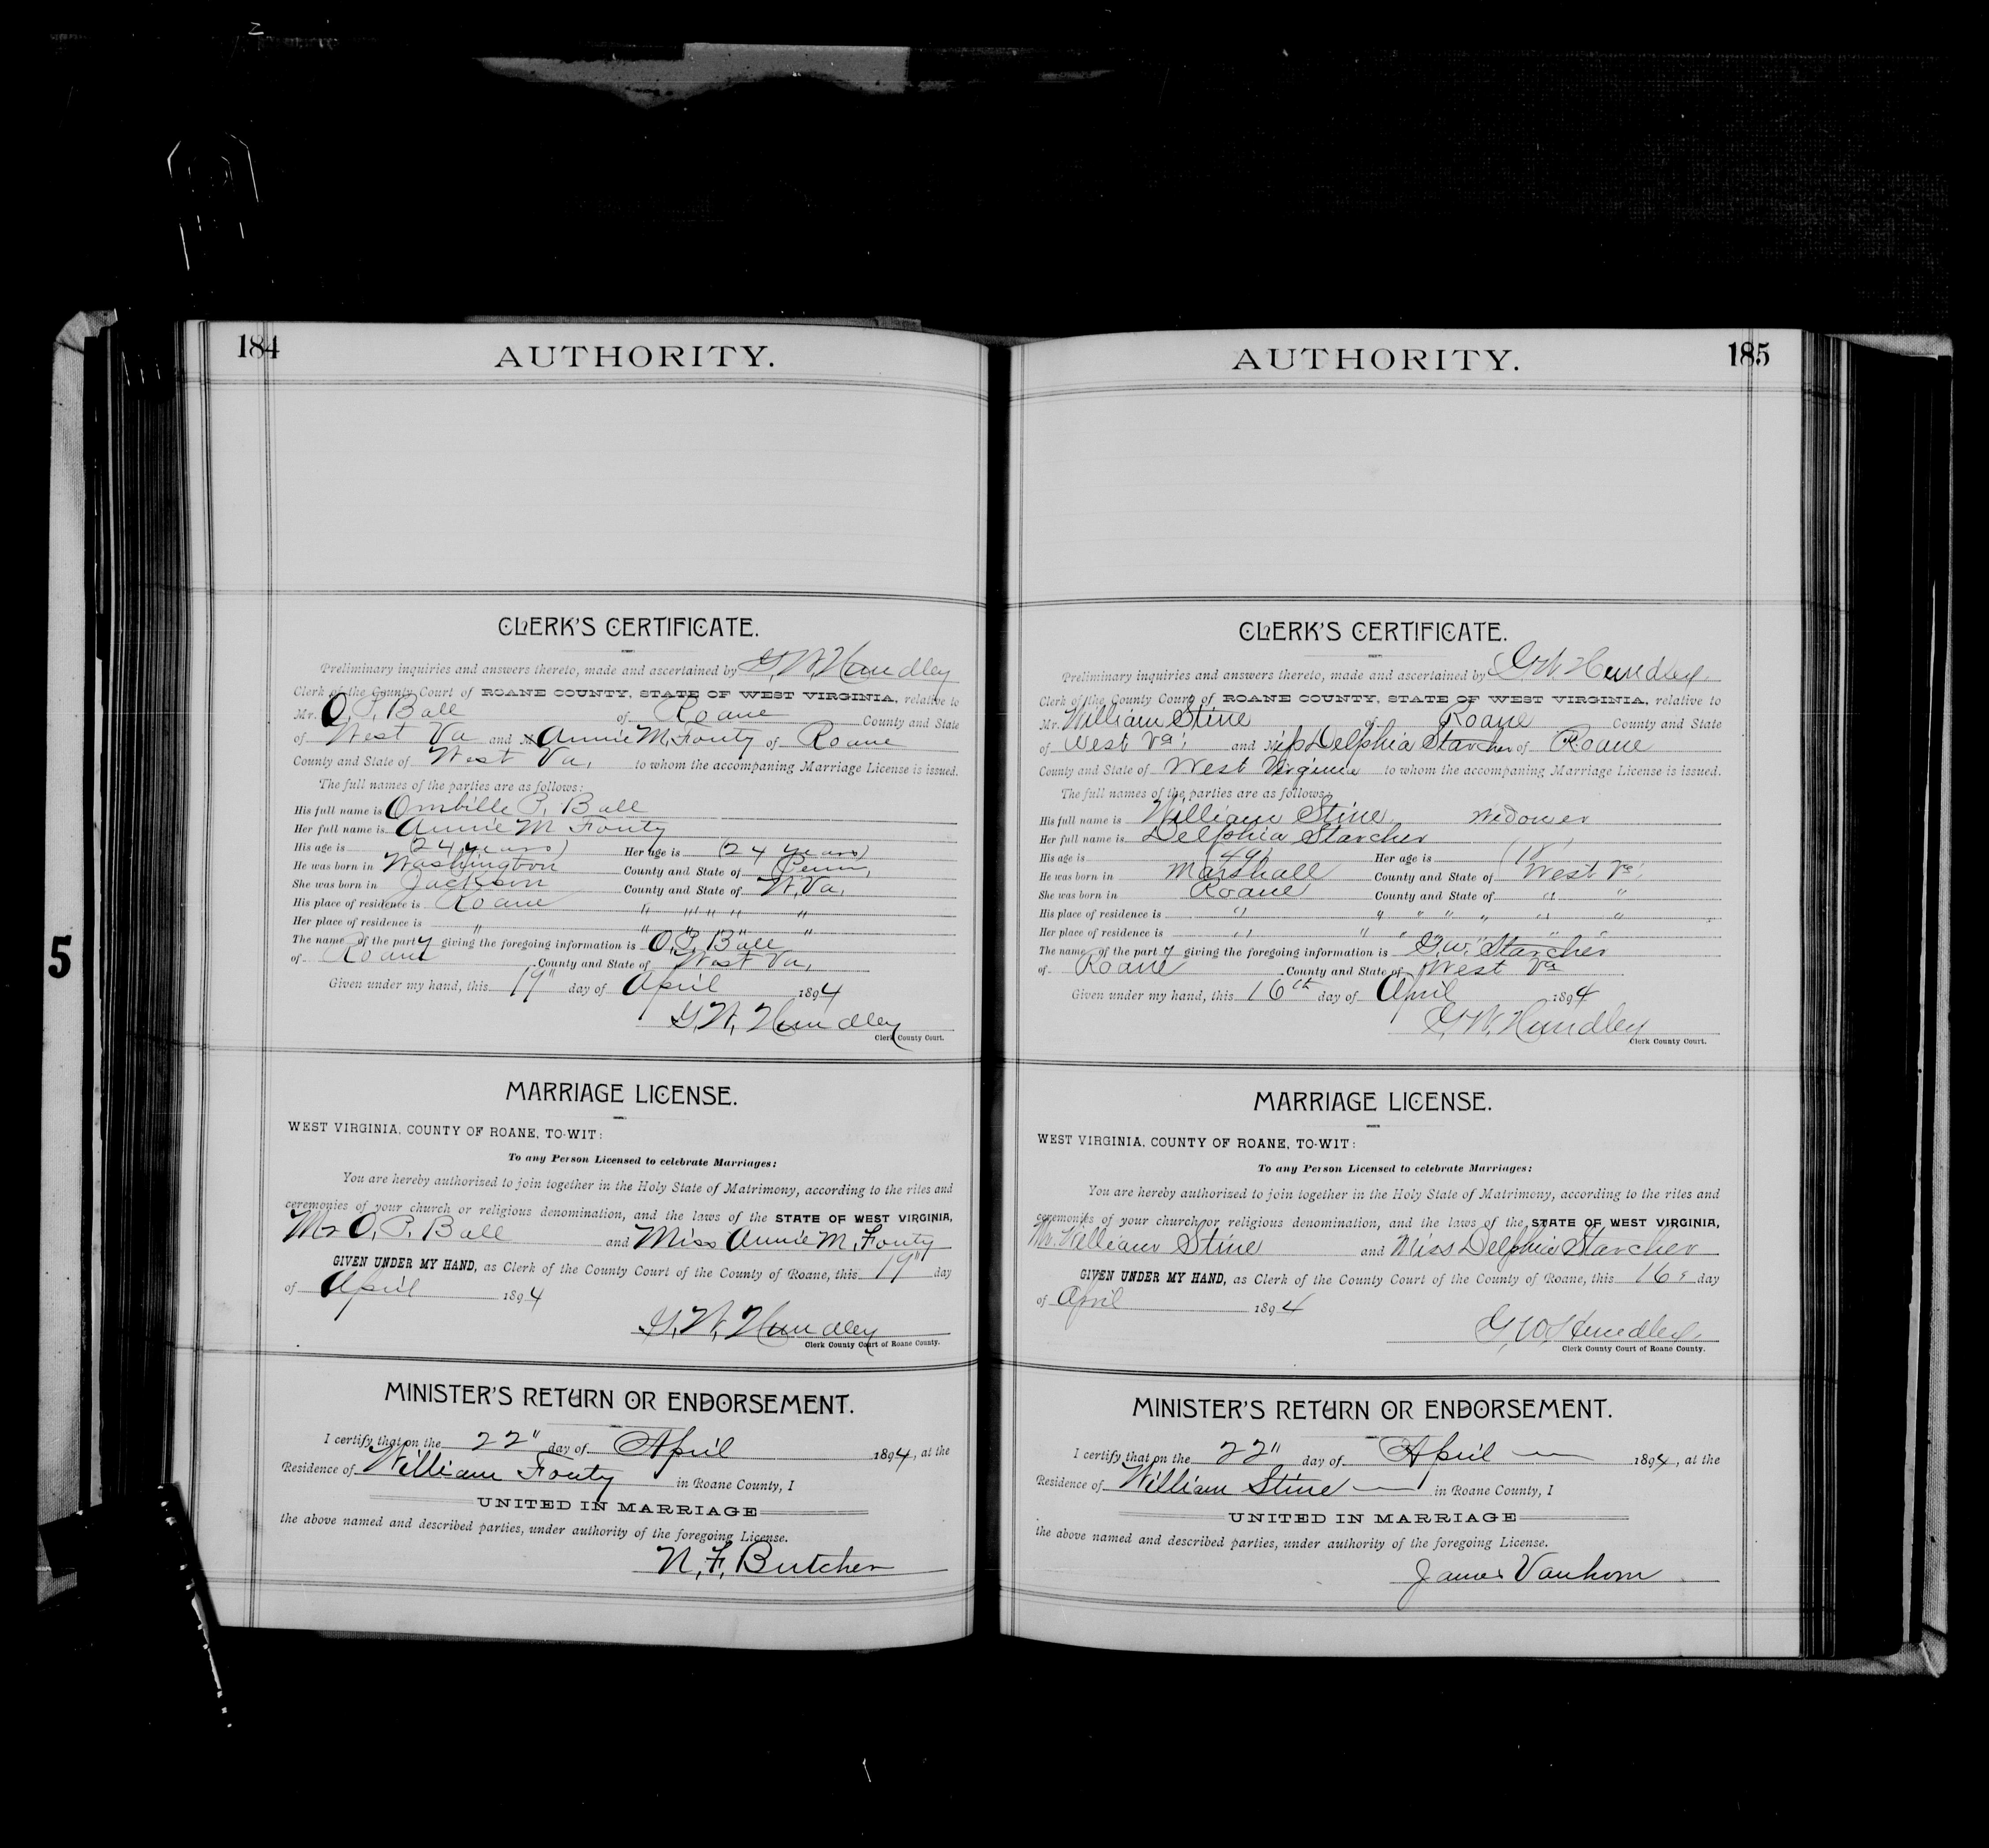 5
184
AUTHORITY.
CLERK'S CERTIFICATE.
Preliminary inquiries and answers thereto, made and ascertained by G. W. Hundley
Clerk of the County Court of ROANE COUNTY, STATE OF WEST VIRGINIA, relative to
Mr. O. P. Ball of Roane County and State
of West Va and M Annie M. Fouty of Roane
County and State of West Va, to whom the accompaning Marriage License is issued.
The full names of the parties are as follows:
His full name is P. Ball
Her full name is Annie M Fouty
His age is (24 years) Her age is (24 years)
He was born in Washington County and State of Penn,
She was born in Jackson County and State of W. Va.
His place of residence is Roane " " " " "
Her place of residence is " " " " "
The name of the party giving the foregoing information is O. P. Ball
of Roane County and State of West Va,
Given under my hand, this 19" day of April 1894
G. W. Hundley
Clerk County Court.
MARRIAGE LICENSE.
WEST VIRGINIA, COUNTY OF ROANE, TO-WIT:
To any Person Licensed to celebrate Marriages:
You are hereby authorized to join together in the Holy State of Matrimony, according to the rites and
ceremonies of your church or religious denomination, and the laws of the STATE OF WEST VIRGINIA,
Mr O. P. Ball and Miss Annie M. Fouty
GIVEN UNDER MY HAND, as Clerk of the County Court of the County of Roane, this 19" day
of April 1894
G. W. Hundley
Clerk County Court of Roane County.
MINISTER'S RETURN OR ENDORSEMENT.
I certify that on the 22" day of April 1894, at the
Residence of William Fouty in Roane County, I
UNITED IN MARRIAGE
the above named and described parties, under authority of the foregoing License.
N. F. Butcher
185
AUTHORITY.
CLERK'S CERTIFICATE.
Preliminary inquiries and answers thereto, made and ascertained by G. W. Hundley
Clerk of the County Court of ROANE COUNTY, STATE OF WEST VIRGINIA, relative to
Mr. William Stine of Roane County and State
of West Va, and Miss Delphia Starcher of Roane
County and State of West Virginia to whom the accompaning Marriage License is issued.
The full names of the parties are as follows:
His full name is William Stine Widower
Her full name is Delphia Starcher
His age is (49) Her age is (18)
He was born in Marshall County and State of West Va,
She was born in Roane County and State of " "
His place of residence is " " " " " " "
Her place of residence is " " " " " "
The name of the party giving the foregoing information is G. W. Starcher
of Roane County and State of West Va
Given under my hand, this 16th day of April 1894
G. W. Hundley
Clerk County Court.
MARRIAGE LICENSE.
WEST VIRGINIA, COUNTY OF ROANE, TO-WIT:
To any Person Licensed to celebrate Marriages:
You are hereby authorized to join together in the Holy State of Matrimony, according to the rites and
ceremonies of your church or religious denomination, and the laws of the STATE OF WEST VIRGINIA,
Mr. William Stine and Miss Delphia Starcher
GIVEN UNDER MY HAND, as Clerk of the County Court of the County of Roane, this 16 day
of April 1894
G. W. Hundley
Clerk County Court of Roane County.
MINISTER'S RETURN OR ENDORSEMENT.
I certify that on the 22" day of April 1894, at the
Residence of William Stine in Roane County, I
UNITED IN MARRIAGE
the above named and described parties, under authority of the foregoing License.
James Vanhorn